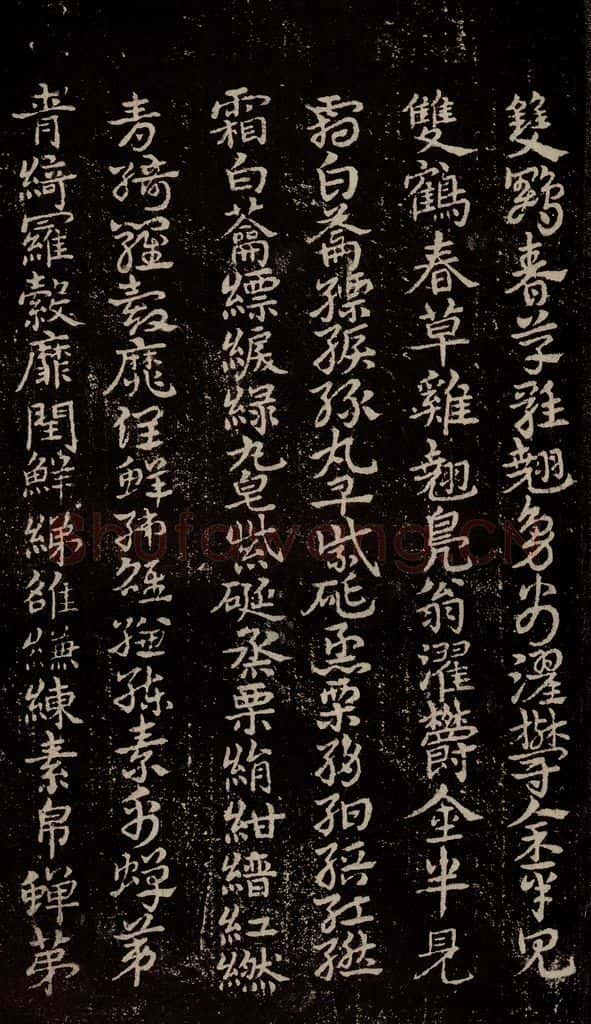 雙鶴春草雞翹鳧翁濯鬱金半見
雙鶴春草雞翹鳧翁濯鬱金半見
霜白蘥縹綟綠丸皂紫硟烝栗絹紺縉紅繎
霜白蘥縹綟綠丸皂紫硟烝栗絹紺縉紅繎
青綺羅縠靡閏鮮綈雒縑練素帛蟬第
青綺羅縠靡閏鮮綈雒縑練素帛蟬第
Shufawang.CN